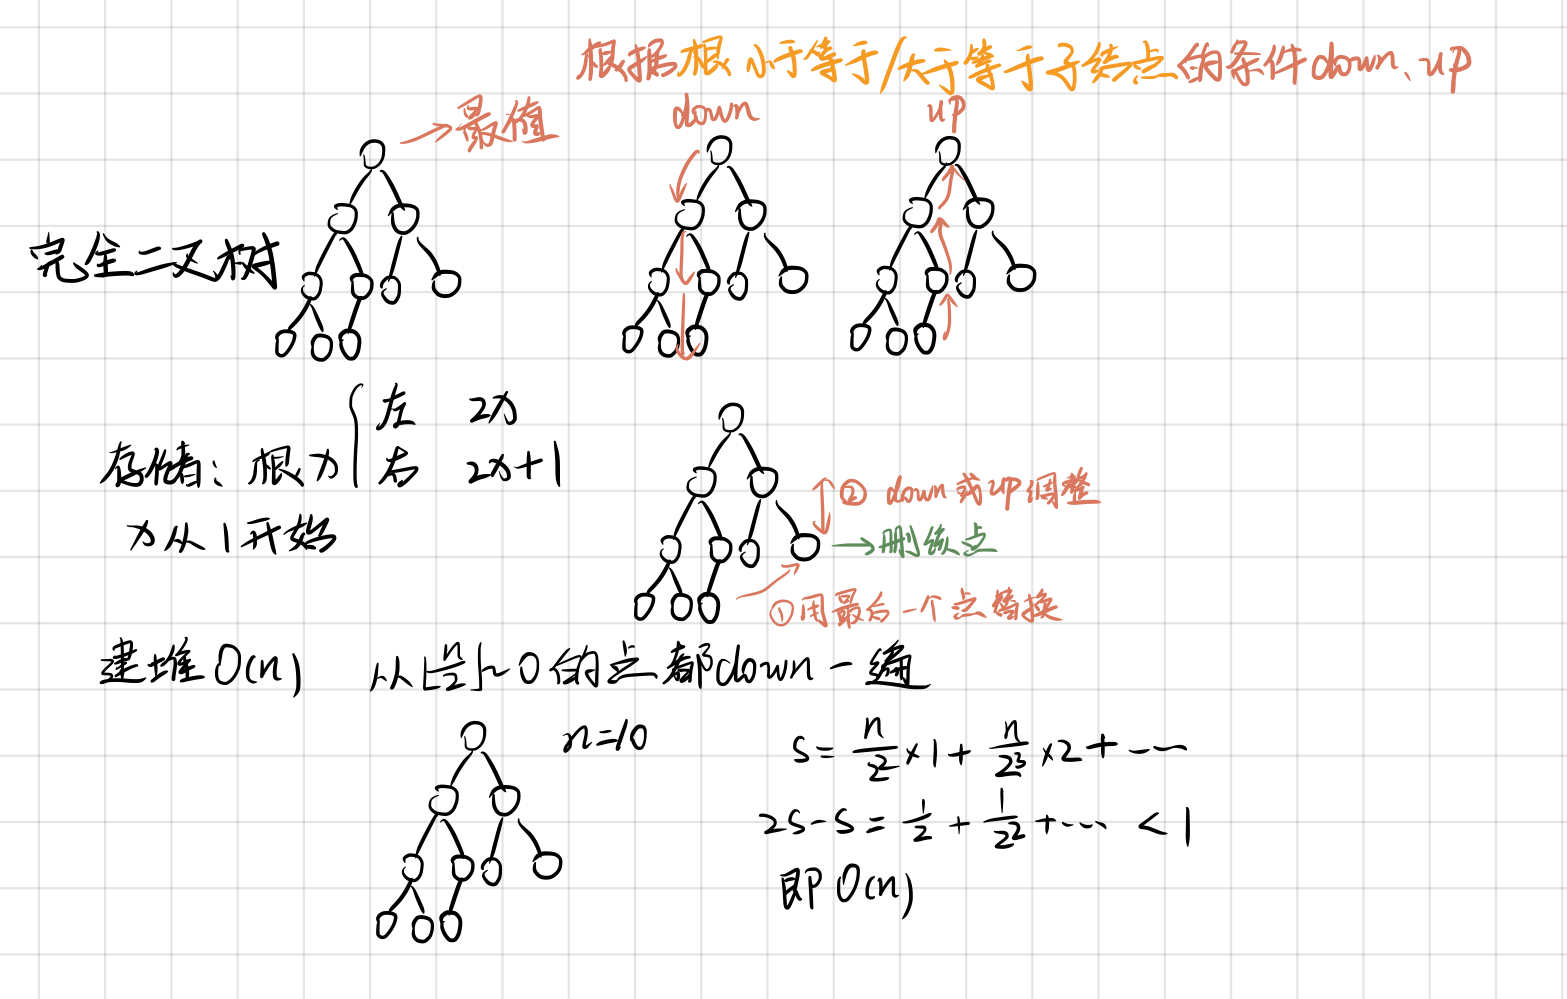 根据根小于等于/大于等于子结点的条件down、up
→最值
down
up
完全二叉树
存储：根x { 左 2x
右 2x+1
x从1开始
② down或up调整
→删该点
①用最后一个点替换
建堆O(n) 从⌊n/2⌋~0的点都down一遍
n=10
S = n/2² ×1 + n/2³ ×2 + ……
2S-S = 1/2 + 1/2² + …… < 1
即O(n)